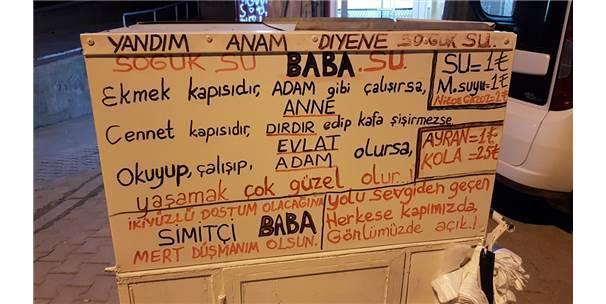 YANDIM ANAM DİYENE SOĞUK SU..
SOĞUK SU BABA SU.
Ekmek kapısıdır, ADAM gibi çalışırsa,
ANNE
Cennet kapısıdır, DIRDIR edip kafa şişirmezse,
EVLAT
Okuyup, çalışıp, ADAM olursa,
yaşamak çok güzel olur..!
SU=1₺
M.suyu=1₺
AYRAN=1₺
KOLA=2.5₺
İKİYÜZLÜ DOSTUM OLACAĞINA
SİMİTÇİ BABA
MERT DÜŞMANIM OLSUN.
yolu sevgiden geçen
Herkese kapımızda,
Gönlümüzde açık..!